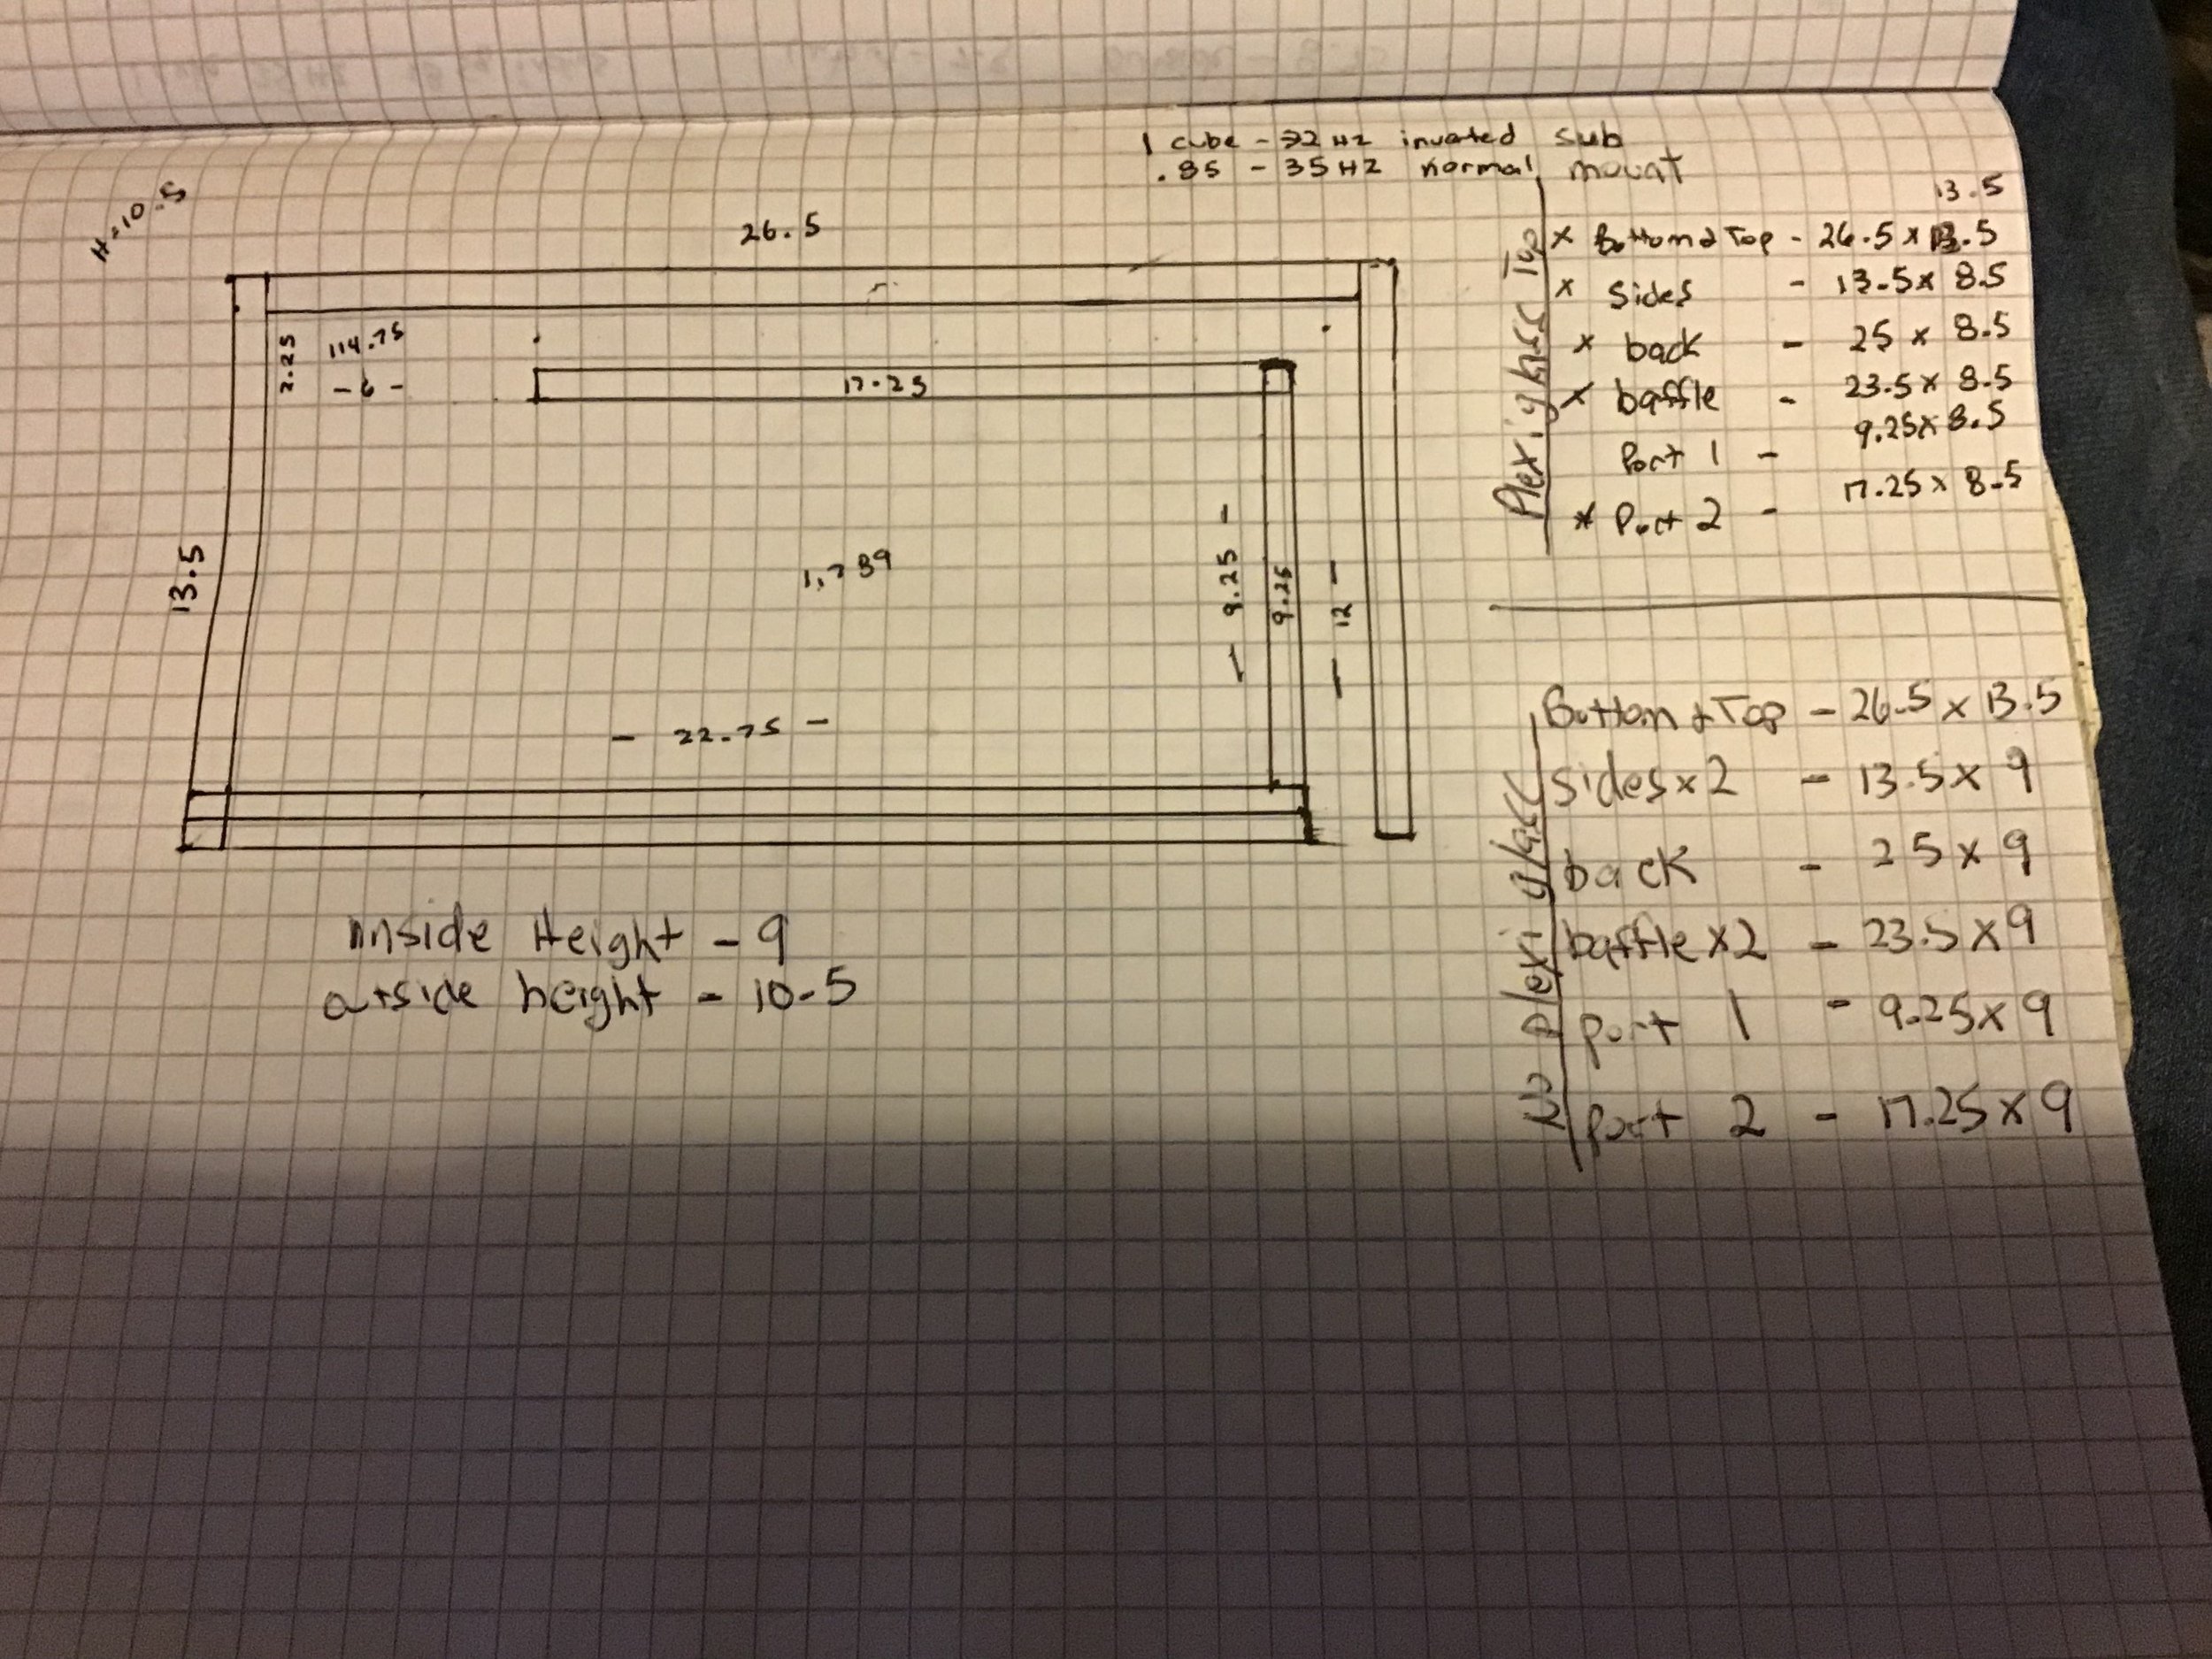 1 cube - 32 Hz inverted sub
.85 - 35HZ normal mount
H=10.5
26.5
2.25
114.75
- 6 -
17.25
13.5
1,789
- 9.25 -
9.25
- 12 -
- 22.75 -
inside Height - 9
outside height - 10.5
Plexiglass Top
13.5
x Bottom & Top - 26.5 x 13.5
x Sides - 13.5 x 8.5
x back - 25 x 8.5
x baffle - 23.5 x 8.5
Port 1 - 9.25 x 8.5
x Port 2 - 17.25 x 8.5
No Plexiglass
Bottom & Top - 26.5 x 13.5
sides x 2 - 13.5 x 9
back - 25 x 9
baffle x2 - 23.5 x 9
port 1 - 9.25 x 9
port 2 - 17.25 x 9